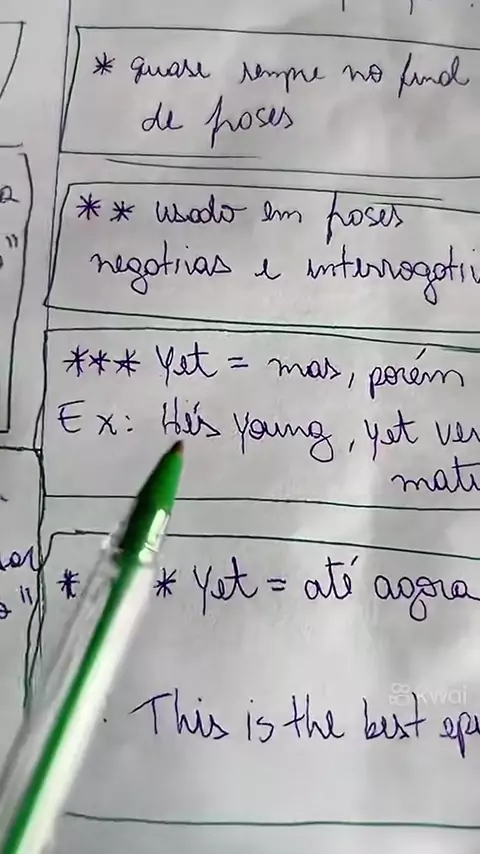 * quase sempre no final
de frases
** usado em frases
negativas e interrogati
*** Yet = mas, porém
Ex: He's young, yet ver
matu
* * Yet = até agora
This is the best epi
kwai